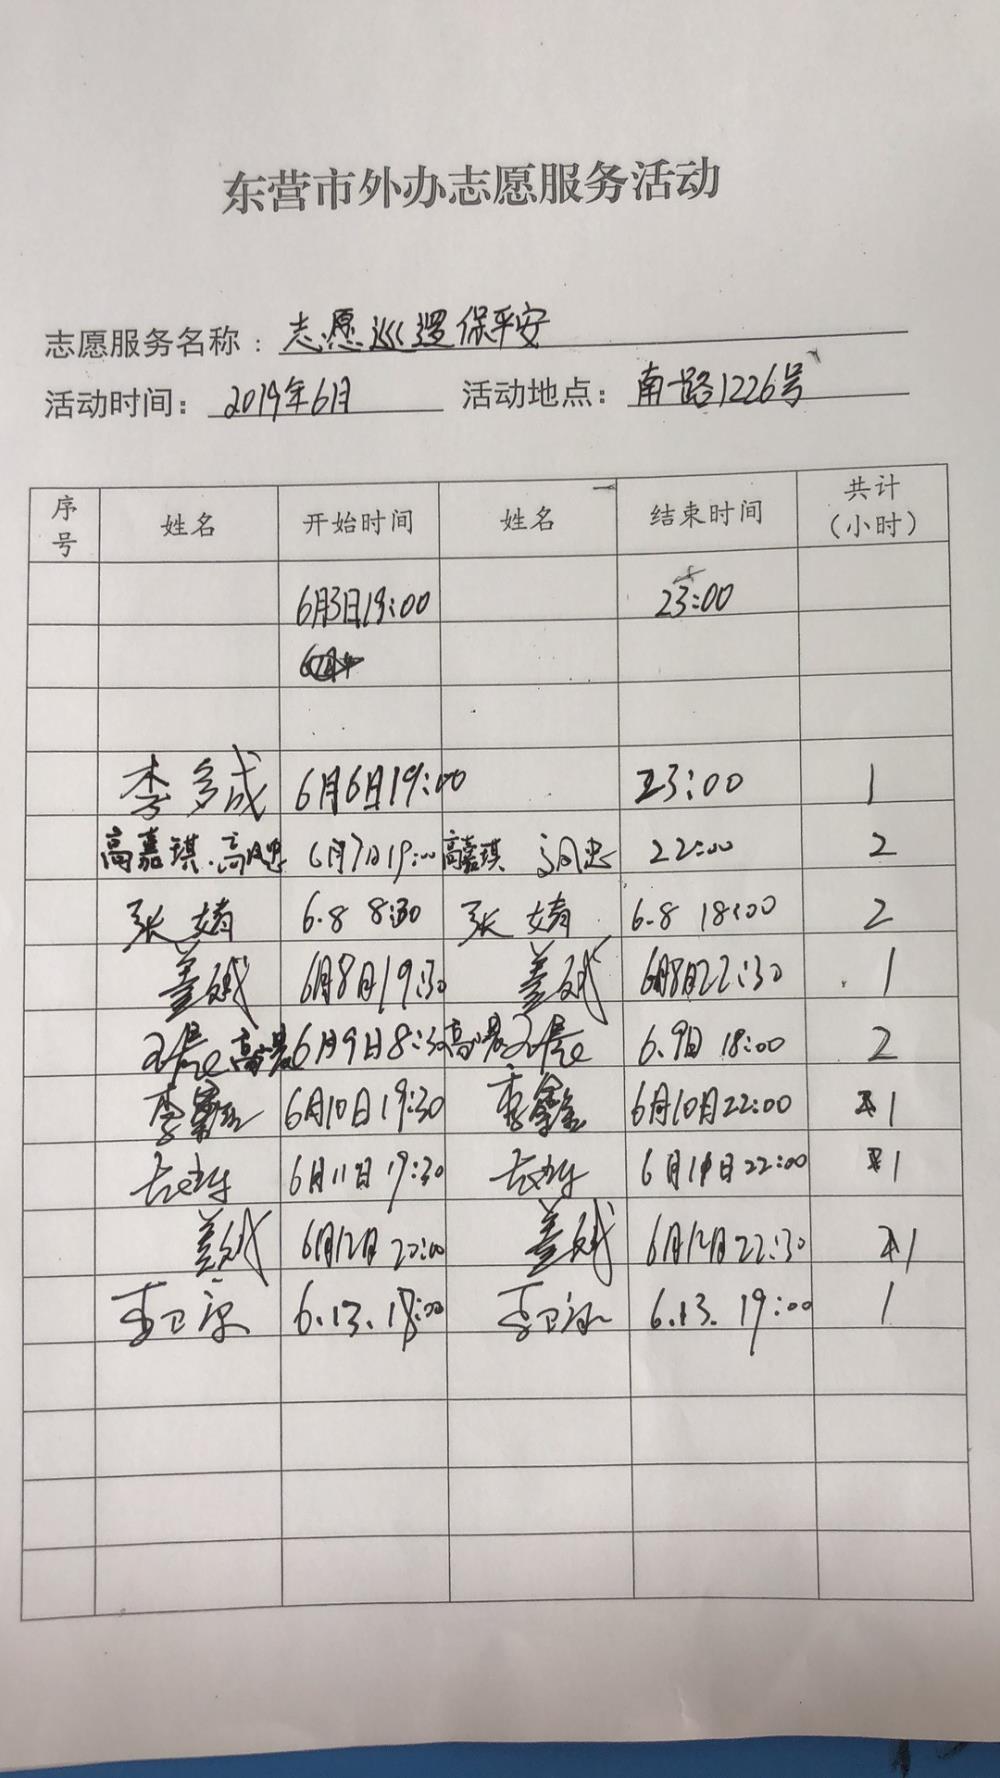 东营市外办志愿服务活动
志愿服务名称：志愿巡逻保平安
活动时间：2019年6月 活动地点：南一路1226号
序号 姓名 开始时间 姓名 结束时间 共计（小时）
6月3日19:00 23:00
李多成 6月6日19:00 23:00 1
高嘉琪 6月7日19:00 高嘉琪 22:00 2
张婧 6.8 8:30 张婧 6.8 18:00 2
盖斌 6月8日19:30 盖斌 6月8日22:30 1
6月9日8:30 6.9日 18:00 2
李鑫 6月10日19:30 李鑫 6月10日22:00 1
6月11日19:30 6月11日22:00 1
盖斌 6月12日20:00 盖斌 6月12日22:30 1
李卫 6.13. 18:00 李卫 6.13. 19:00 1